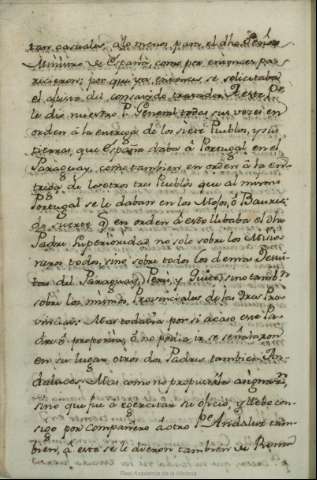 tan casuales, a lo menos para el dho Señor
Ministro de España, como por enigmas pa-
recieron; por que ya entonces se solicitaba
el aquel consavido tratado. A este Pe
le dio nuestro P. General todas sus vezes en
orden à la entrega de los siete Pueblos, y sus
tierras, que España daba à Portugal en el
Paraguay, como tambien en orden à la en-
trega de los otros tres Pueblos que al mismo
Portugal se le daban en los Moxos, ò Baures;
de suerte q en orden a esto llebaba el dho
Padre superioridad no solo sobre los Misio-
neros todos, sino sobre todos los demas Jesui-
tas del Paraguay, Peru, y Quito, sino tambn
sobre los mismos Provinciales de las tres Pro-
vincias: Mas todavia por si acaso este Pa-
dre ò proponia, ò no podia ir, se señalaron
en su lugar otros dos Padres tambien An-
daluces. Mas como no propuso el primero,
sino que fue a egercitar su oficio, y llebo con-
sigo por Compañero a otro Pe Andaluz tam-
bien, à este se le dieron tambien de Roma
Real Academia de la Historia